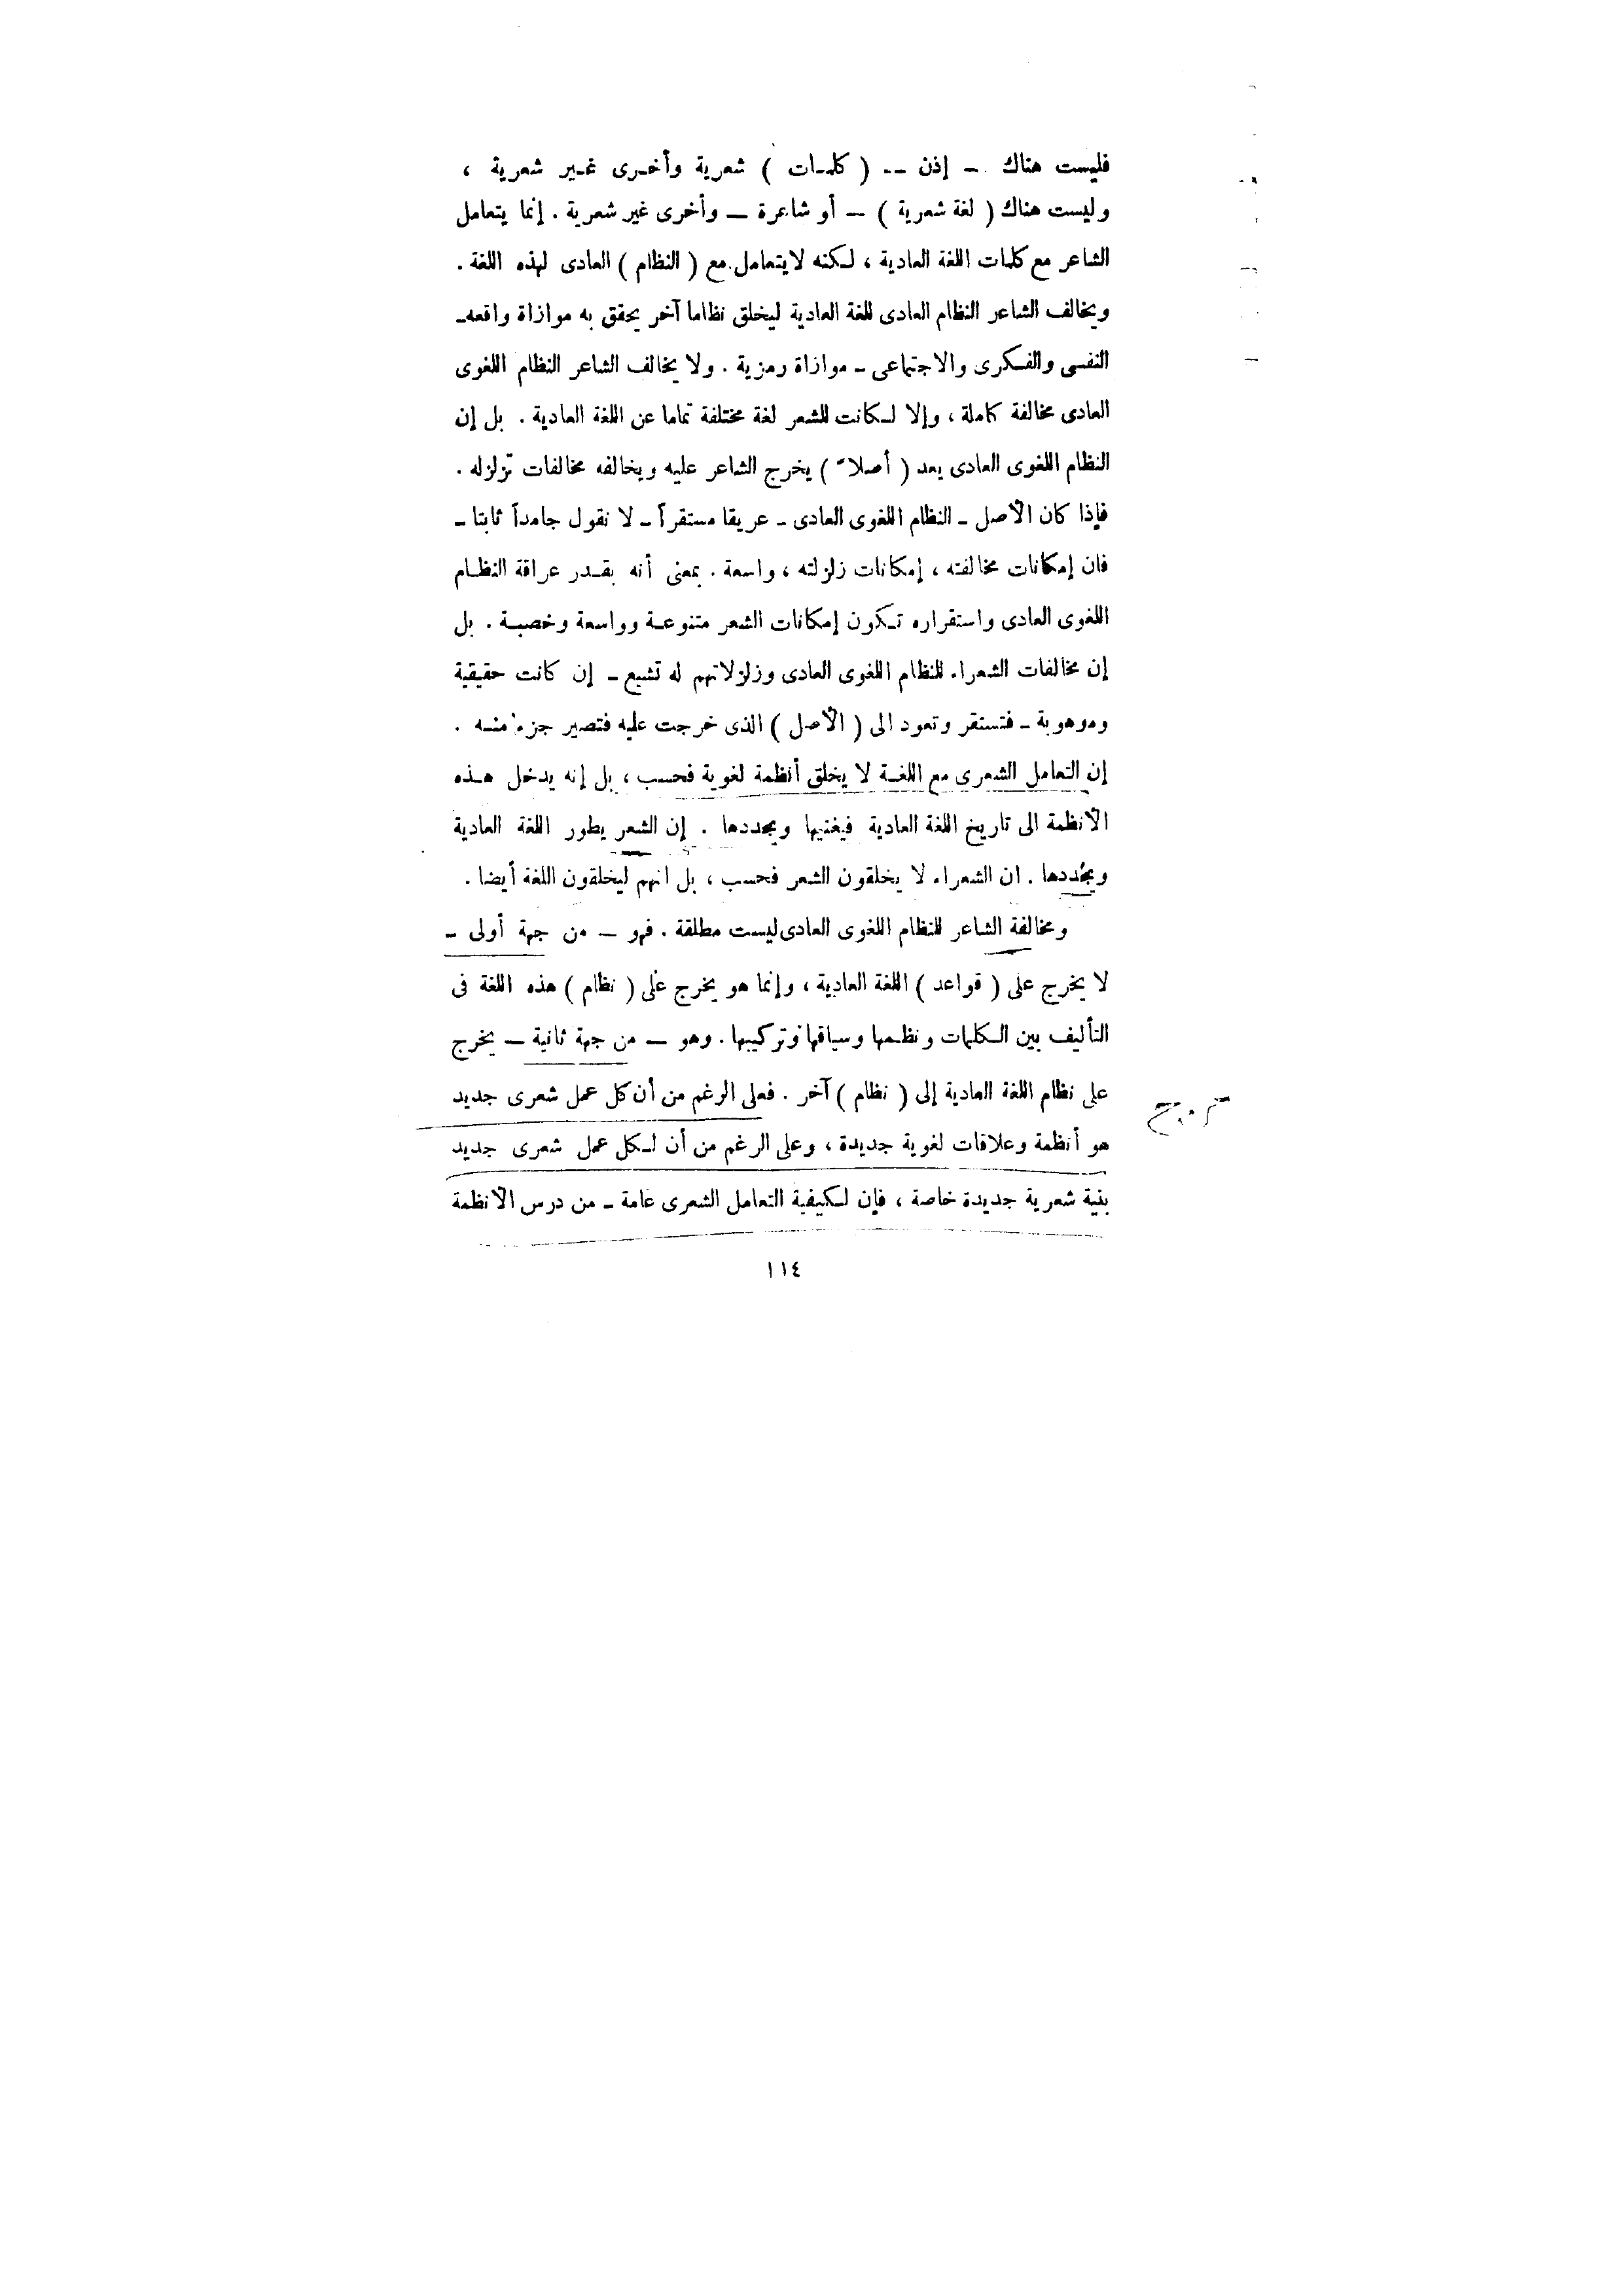 فليست هناك – إذن – ( كلمات ) شعرية وأخرى غير شعرية ،
وليست هناك ( لغة شعرية ) – أو شاعرة – وأخرى غير شعرية . إنما يتعامل
الشاعر مع كلمات اللغة العادية ، لكنه لا يتعامل مع ( النظام ) العادى لهذه اللغة .
ويخالف الشاعر النظام العادى للغة العادية ليخلق نظاما آخر يحقق به موازاة واقعه –
النفسى والفكرى والاجتماعى – موازاة رمزية . ولا يخالف الشاعر النظام اللغوى
العادى مخالفة كاملة ، وإلا لكانت للشعر لغة مختلفة تماما عن اللغة العادية . بل إن
النظام اللغوى العادى يعد ( أصلاً ) يخرج الشاعر عليه ويخالفه مخالفات تزلزله .
فإذا كان الأصل – النظام اللغوى العادى – عريقا مستقراً – لا نقول جامداً ثابتا –
فان إمكانات مخالفته ، إمكانات زلزلته ، واسعة . بمعنى أنه بقدر عراقة النظام
اللغوى العادى واستقراره تكون إمكانات الشعر متنوعة وواسعة وخصبة . بل
إن مخالفات الشعراء للنظام اللغوى العادى وزلزلاتهم له تشيع – إن كانت حقيقية
وموهوبة – فتستقر وتعود الى ( الأصل ) الذى خرجت عليه فتصير جزء منه .
إن التعامل الشعرى مع اللغة لا يخلق أنظمة لغوية فحسب ، بل إنه يدخل هذه
الأنظمة الى تاريخ اللغة العادية فيغنيها ويجددها . إن الشعر يطور اللغة العادية
ويجددها . ان الشعراء لا يخلقون الشعر فحسب ، بل انهم ليخلقون اللغة أيضا .
ومخالفة الشاعر للنظام اللغوى العادى ليست مطلقة . فهو – من جهة أولى –
لا يخرج على ( قواعد ) اللغة العادية ، وإنما هو يخرج على ( نظام ) هذه اللغة فى
التأليف بين الكلمات ونظمها وسياقها وتركيبها . وهو – من جهة ثانية – يخرج
على نظام اللغة العادية إلى ( نظام ) آخر . فعلى الرغم من أن كل عمل شعرى جديد
هو أنظمة وعلاقات لغوية جديدة ، وعلى الرغم من أن لكل عمل شعرى جديد
بنية شعرية جديدة خاصة ، فإن لكيفية التعامل الشعرى عامة – من درس الأنظمة
١١٤